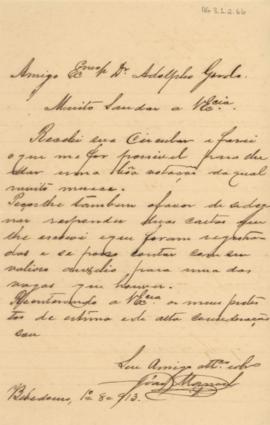 AG 3.1.2.66
Amigo Exmo Dr. Adolpho Gordo
Muito Saudar a V.Excia.
Recebi sua Circular e farei
o que me for possivel para lhe
dar uma bôa votação da qual
muito merece.
Peço lhe tambem o favor de se dig
nar responder duas cartas que
lhe escrevi e que foram registra
das e se posso contar com seu
valioso auxilio para uma das
vagas que houver.
a V.Excia os meus protes
tos de estima e de alta consideração
sou
Seu Amigo
João
Bebedouro, 1º 8 913.